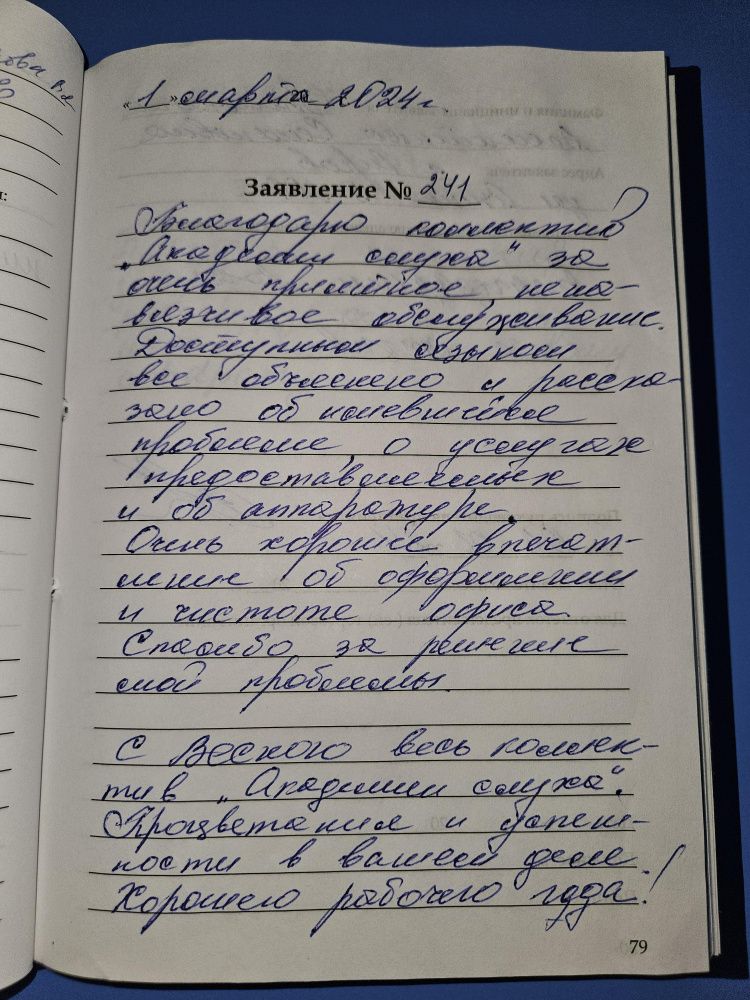 "1" марта 2024г.
Заявление № 241
Благодарю коллектив
„Академии слуха" за
очень приятное, нена-
вязчивое обслуживание.
Доступным языком
все объяснено и расска-
зано об имевшейся
проблеме, о услугах
предоставляемых
и об аппаратуре.
Очень хорошее впечат-
ление об оформлении
и чистоте офиса.
Спасибо за решение
моей проблемы.
С Весною весь коллек-
тив „Академии слуха".
Процветания и успеш-
ности в вашем деле.
Хорошего рабочего года!
79